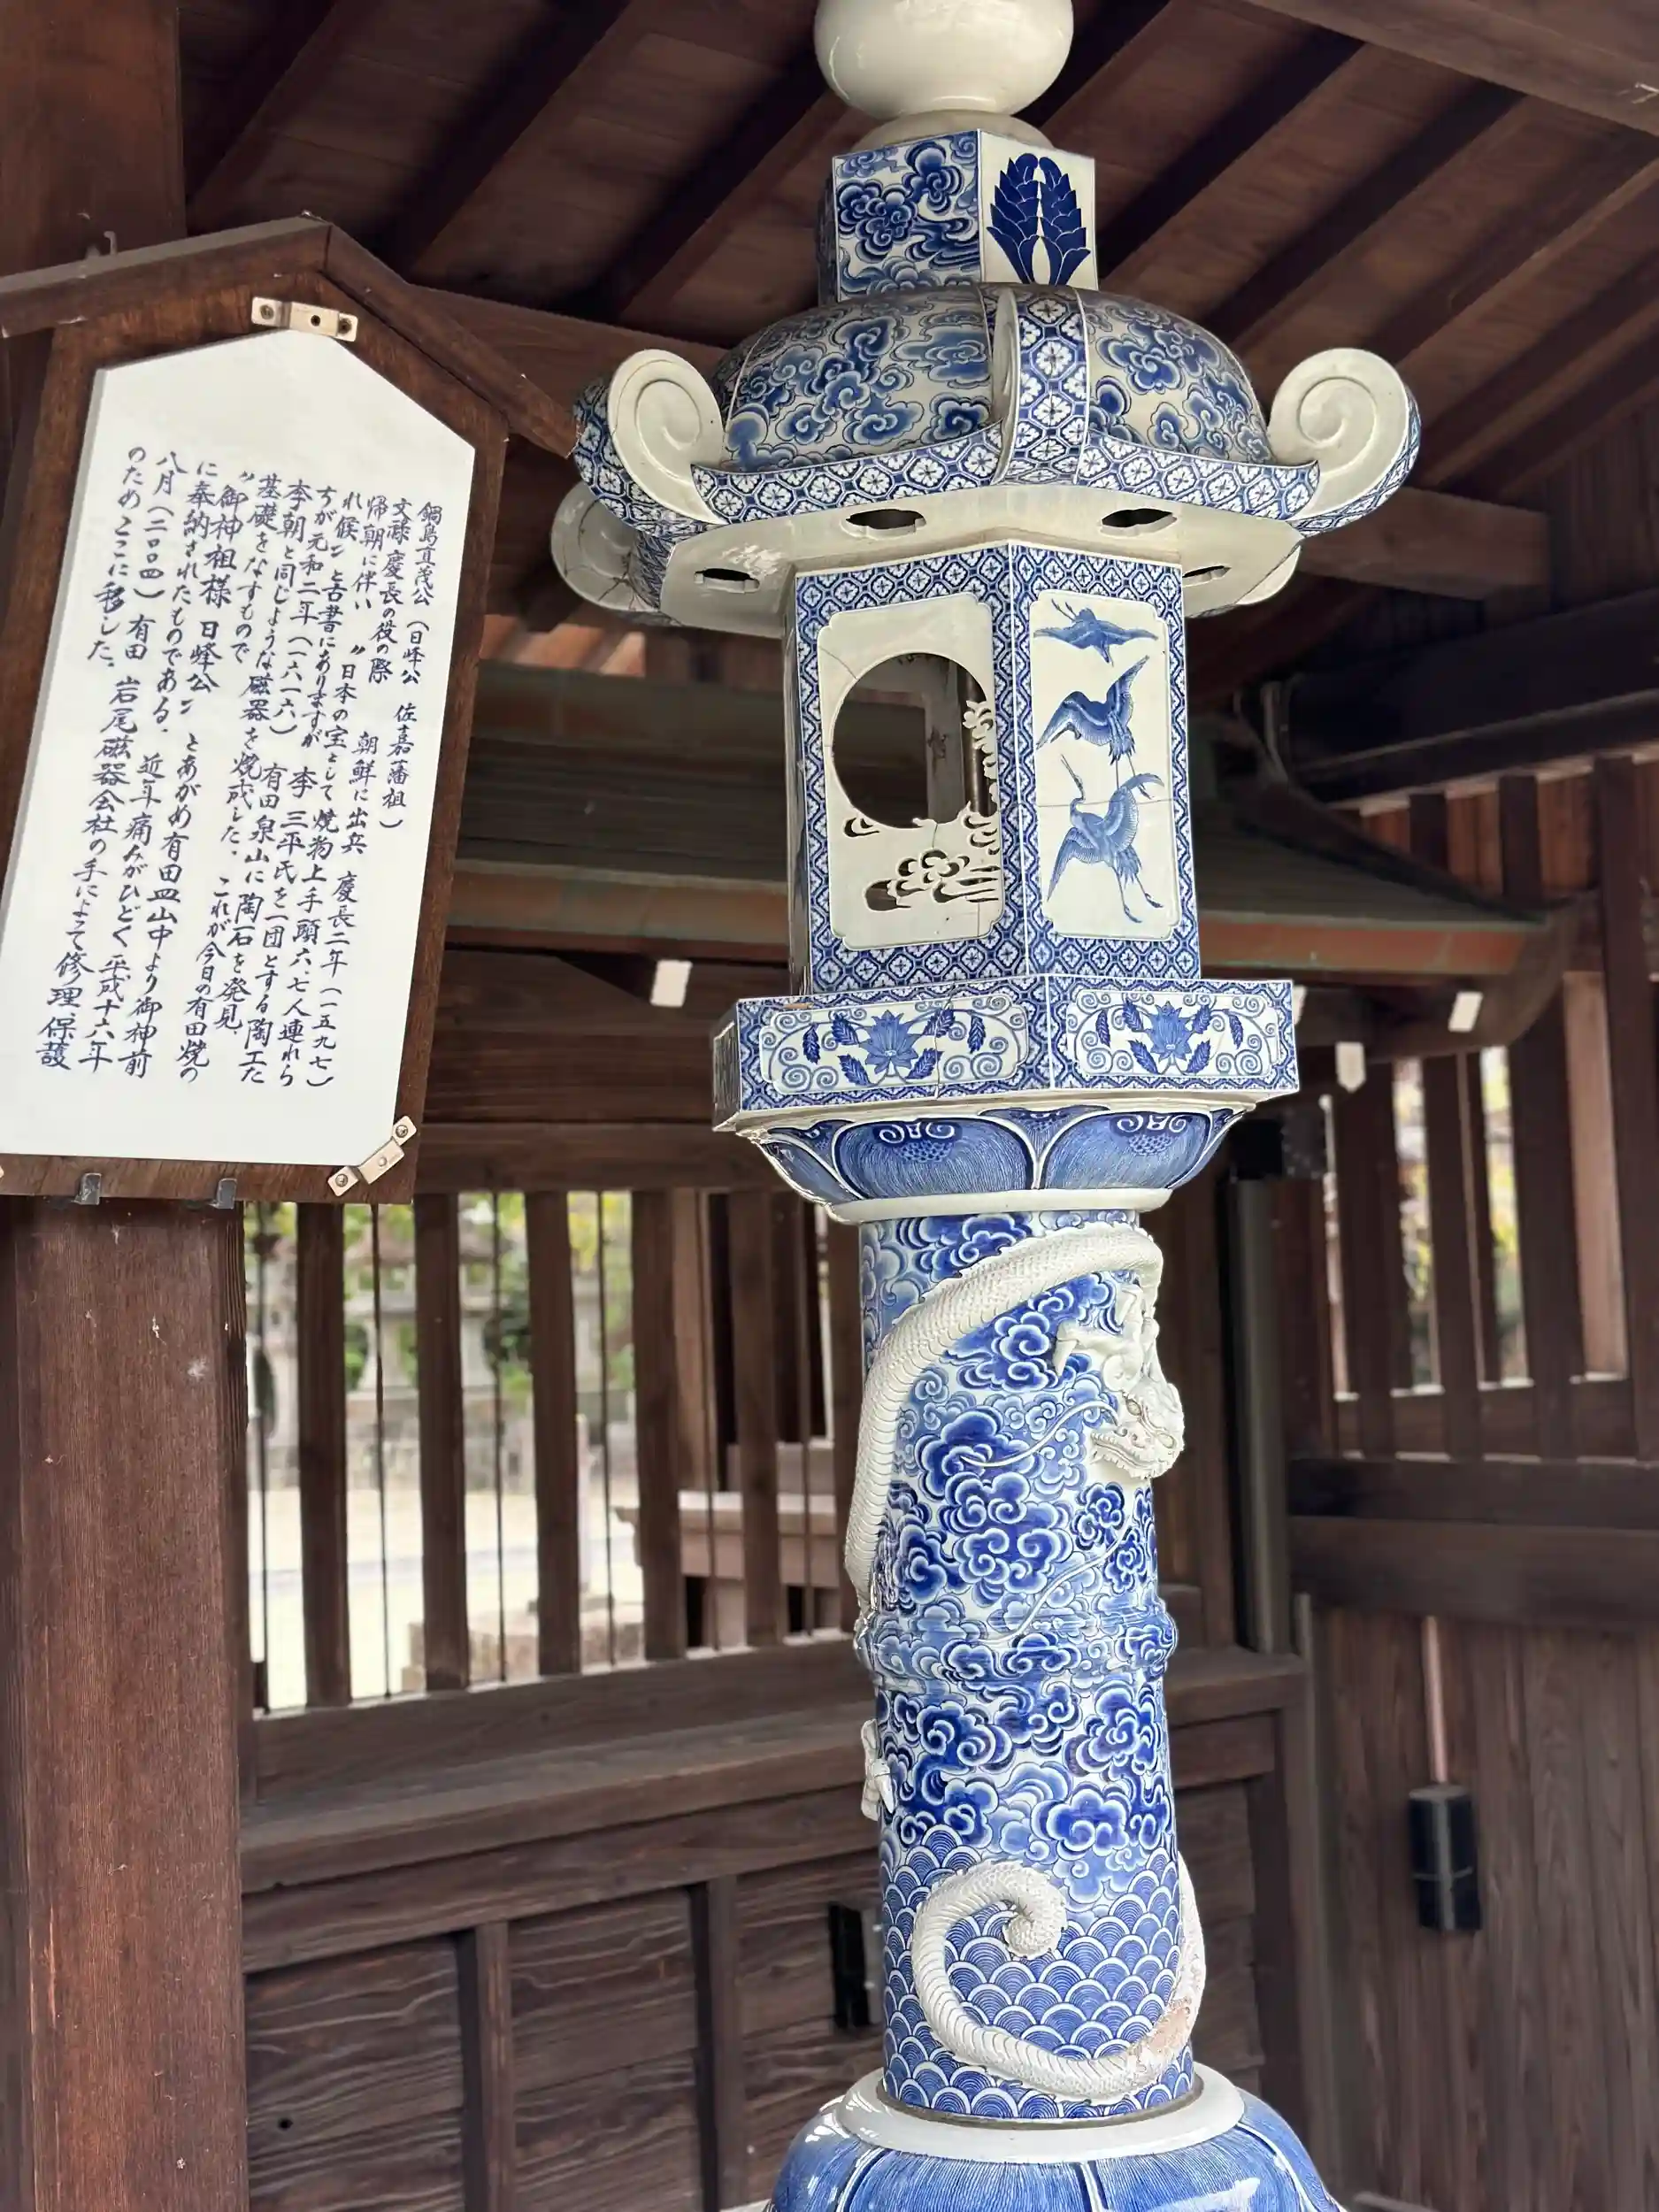 鍋島直茂公（日峰公 佐嘉藩祖）
文禄慶長の役の際 朝鮮に出兵 慶長二年（一五九七）
帰朝に伴い 〝日本の宝として焼物上手頭六、七人連れら
れ候〟と古書にありますが 李 三平氏を一団とする陶工た
ちが元和二年（一六一六） 有田泉山に陶石を発見、
李朝と同じような磁器を焼成した。これが今日の有田焼の
基礎をなすもので
〝御神祖様 日峰公〟とあがめ有田皿山中より御神前
に奉納されたものである。近年痛みがひどく平成十六年
八月（二〇〇四）有田 岩尾磁器会社の手によって修理、保護
のためここに移した。